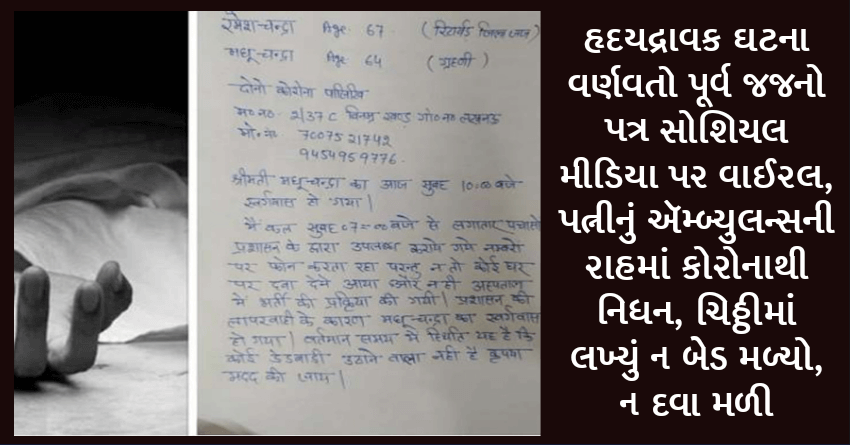 रमेश चन्द्रा Age 67 (रिटायर्ड जिला जज)
मधु चन्द्रा Age 64 (गृहणी)
दोनो कोरोना पाजिटिव
म०नं० 2/37 C विनम्र खण्ड गो०न० लखनऊ
मो०नं० 7007521742
9454959776.
श्रीमती मधु चन्द्रा का आज सुबह 10:00 बजे
स्वर्गवास हो गया।
मैं कल सुबह 07=00 बजे से लगातार पचासो
प्रशासन के द्वारा उपलब्ध कराये गये नम्बरो
पर फोन करता रहा परन्तु न तो कोई घर
पर दवा देने आया और न ही अस्पताल
मे भर्ती की प्रक्रिया की गयी। प्रशासन की
लापरवाही के कारण मधु चन्द्रा का स्वर्गवास
हो गया। वर्तमान समय मे स्थिति यह है कि
कोई डेडबाडी उठाने वाला नही है कृपया
मदद की जाय।
હૃદયદ્રાવક ઘટના
વર્ણવતો પૂર્વ જજનો
પત્ર સોશિયલ
મીડિયા પર વાઈરલ,
પત્નીનું ઍમ્બ્યુલન્સની
રાહમાં કોરોનાથી
નિધન, ચિઠ્ઠીમાં
લખ્યું ન બેડ મળ્યો,
ન દવા મળી